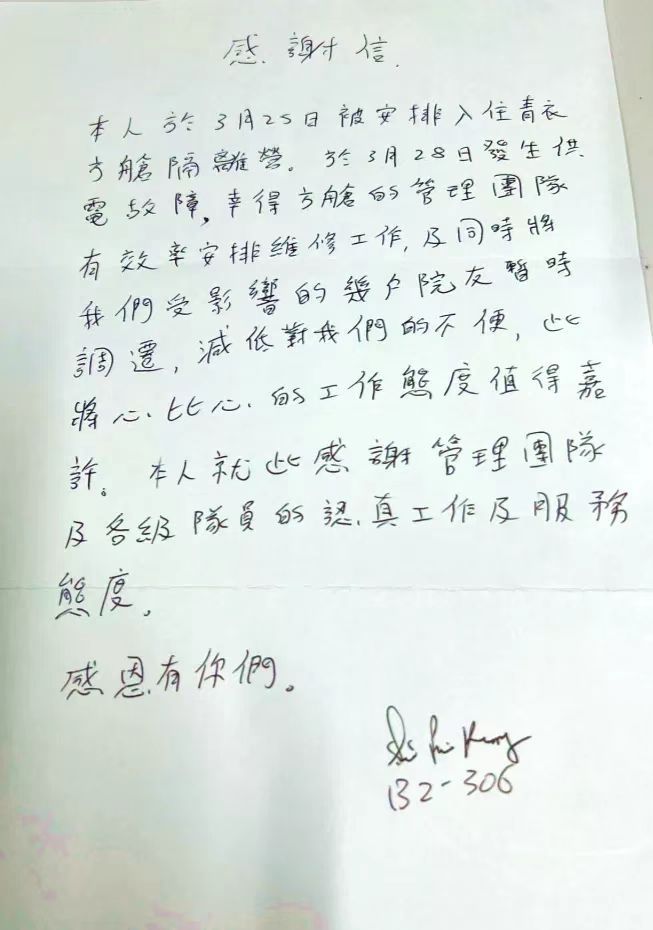 感謝信.
本人於3月25日被安排入住青衣
方艙隔離營。於3月28日發生供
電故障,幸得方艙的管理團隊
有效率安排維修工作,及同時將
我們受影響的幾戶院友暫時
調遷,減低對我們的不便,此
將心比心的工作態度值得嘉
許。本人就此感謝管理團隊
及各級隊員的認真工作及服務
態度.
感恩有你們。
B2-306